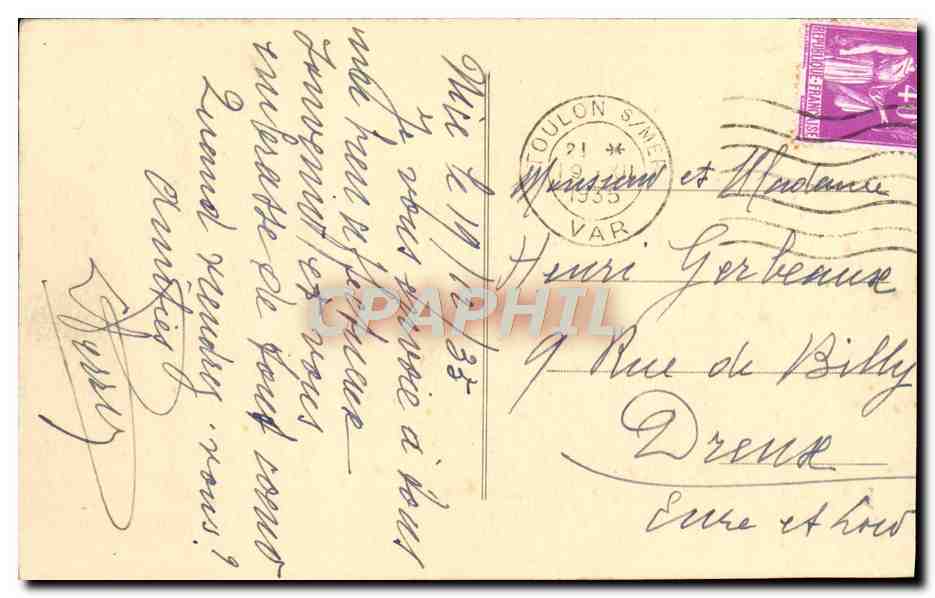 Nice le 19/12/35
Je vous envoie à tous
mes bien affectueux
souvenirs et vous
embrasse de tout coeur
Quand viendrez-vous?
Amitiés
TOULON S/MER
21 *
1935
VAR
REPUBLIQUE-FRANÇAISE
Monsieur et Madame
Henri Gerbeaux
9 Rue de Billy
Dreux
Eure et Loir
CPAPHIL